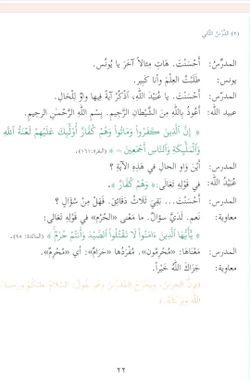 (٢) الدَّرْسُ الثَّانِي
المدرّسُ: أَحْسَنْتَ. هَاتِ مِثَالاً آخَرَ يا يُونُسُ.
يونس: طَلَبْتُ العِلْمَ وأَنا كَبِيرٌ.
المدرّسُ: أَحْسَنْتَ. يا عُبَيْدَ اللَّهِ، اُذْكُرْ آيَةً فيها واوٌ لِلْحَالِ.
عبيد الله: أَعُوذُ بِاللَّهِ مِنَ الشَّيْطَانِ الرَّجِيمِ. بِسْمِ اللَّهِ الرَّحْمَنِ الرَّحِيمِ.
﴿ إِنَّ الَّذِينَ كَفَرُوا وَمَاتُوا وَهُمْ كُفَّارٌ أُولَٰئِكَ عَلَيْهِمْ لَعْنَةُ اللَّهِ
وَالْمَلَائِكَةِ وَالنَّاسِ أَجْمَعِينَ ﴾ (البقرة: ١٦١).
المدرس: أَيْنَ وَاوُ الحالِ في هَذِهِ الآيَةِ ؟
عُبَيْدُ اللَّهِ: في قَوْلِهِ تَعَالَى: ﴿ وَهُمْ كُفَّارٌ ﴾.
المدرس: أَحْسَنْتَ... بَقِيَ ثَلَاثُ دَقَائِقَ. فَهَلْ مِنْ سُؤَالٍ ؟
معاوية: نَعَم. لَدَيَّ سُؤَالٌ. ما مَعْنَى «الحُرُمِ» في قَوْلِهِ تَعَالَى:
﴿ يَا أَيُّهَا الَّذِينَ آمَنُوا لَا تَقْتُلُوا الصَّيْدَ وَأَنْتُمْ حُرُمٌ ﴾ (المائدة: ٩٥).
المدرس: مَعْنَاهَا: «مُحْرِمُونَ». مُفْرَدُهَا «حَرَامٌ»: أَي «مُحْرِمٌ».
معاوية: جَزَاكَ اللَّهُ خَيْراً.
٢٢